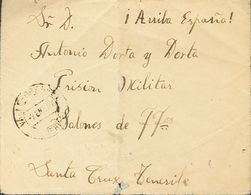 Sr. D. ¡Arriba España!
Antonio Dorta y Dorta
Prision Militar
Salones de
Santa Cruz Tenerife